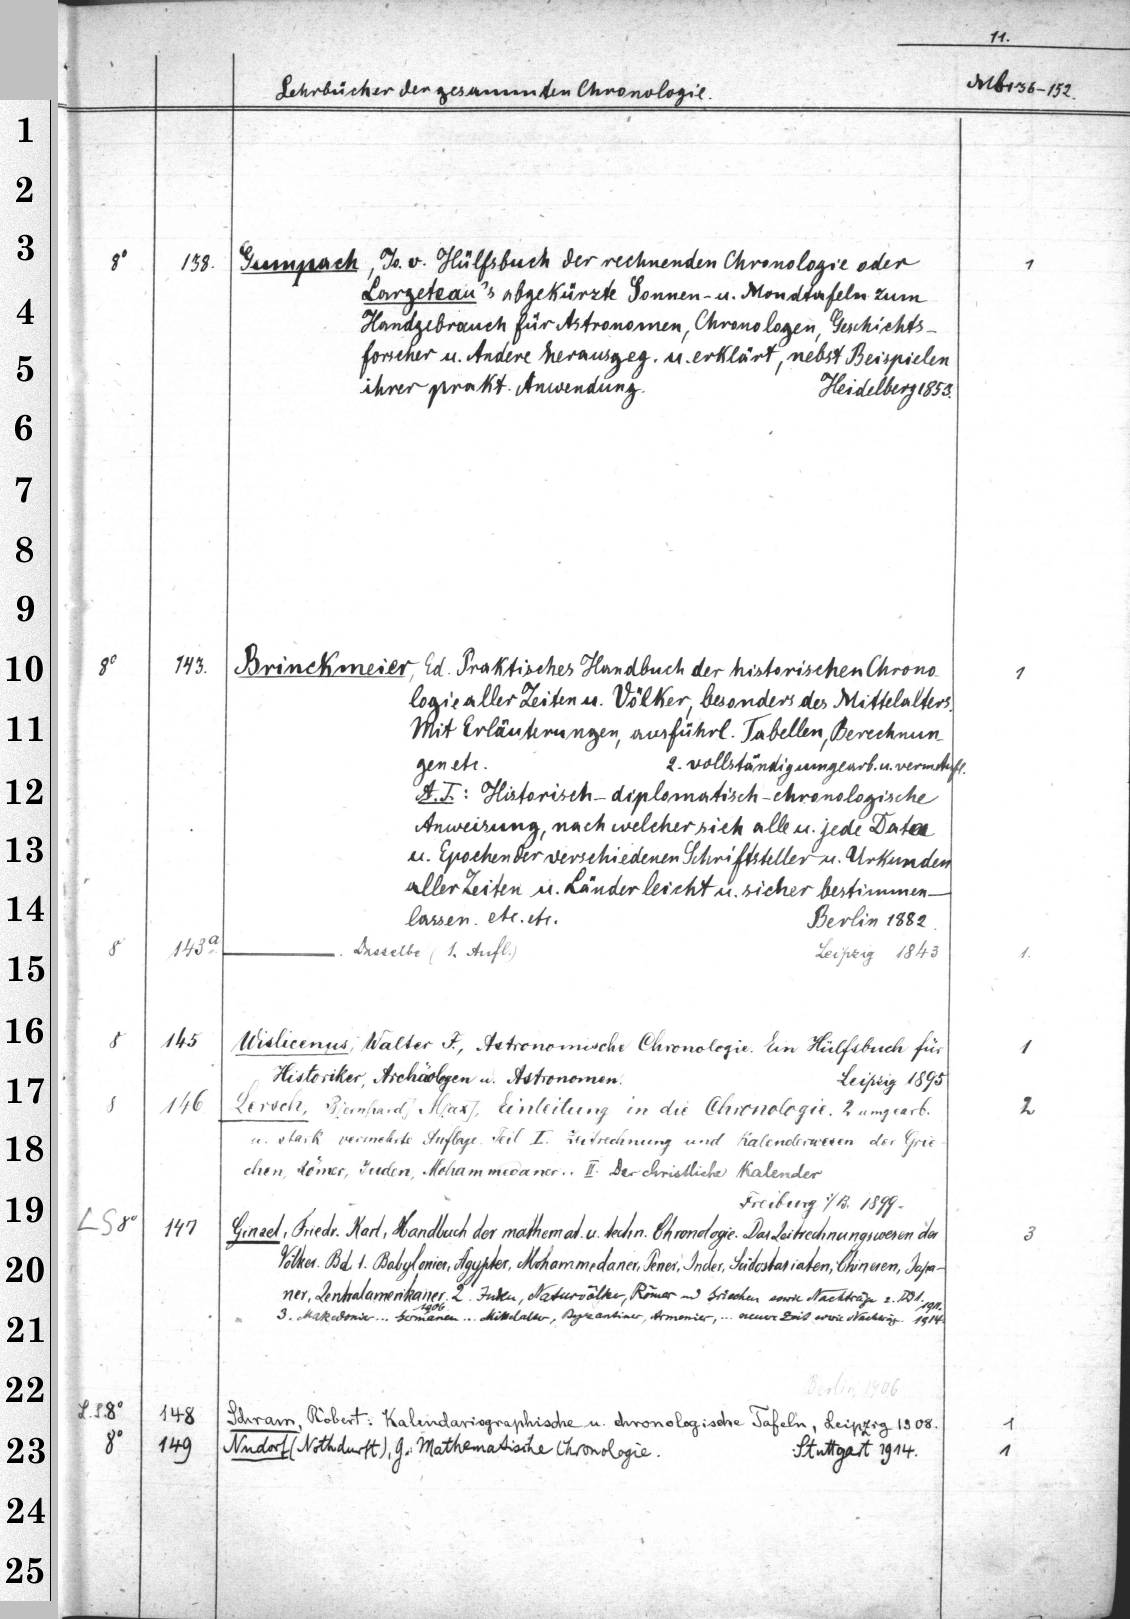 11.
Lehrbücher der gesammten Chronologie. Mb 136-152.
1
2
3
8° 138. Gumpach, Jo. v. Hülfsbuch der rechnenden Chronologie oder 1
Largeteau's abgekürzte Sonnen- u. Mondtafeln zum
4
Handgebrauch für Astronomen, Chronologen, Geschichts-
forscher u. Andere herausgeg. u. erklärt, nebst Beispielen
5
ihrer prakt. Anwendung. Heidelberg 1853.
6
7
8
9
10
8° 143. Brinckmeier, Ed. Praktisches Handbuch der historischen Chrono- 1
logie aller Zeiten u. Völker, besonders des Mittelalters.
11
Mit Erläuterungen, ausführl. Tabellen, Berechnun
gen etc. 2. vollständig umgearb. u. verm. Aufl.
12
A.T.: Historisch-diplomatisch-chronologische
Anweisung, nach welcher sich alle u. jede Data
13
u. Epochen der verschiedenen Schriftsteller u. Urkunden
aller Zeiten u. Länder leicht u. sicher bestimmen
14
lassen. etc. etc. Berlin 1882.
8 143a. ——. Dasselbe (1. Aufl.) Leipzig 1843 1.
15
16
8 145 Wislicenus, Walter F., Astronomische Chronologie. Ein Hülfsbuch für 1
Historiker, Archäologen u. Astronomen. Leipzig 1895
17
8 146 Lersch, B[ernhard] M[ax], Einleitung in die Chronologie. 2 umgearb. 2
u. stark vermehrte Auflage. Teil I. Zeitrechnung und Kalenderwesen der Grie-
18
chen, Römer, Juden, Mohammedaner.. II. Der christliche Kalender
Freiburg i/B. 1899.
19
LS 8° 147 Ginzel, Friedr. Karl, Handbuch der mathemat. u. techn. Chronologie. Das Zeitrechnungswesen der 3
20
Völker. Bd 1. Babylonier, Ägypter, Mohammedaner, Perser, Inder, Südostasiaten, Chinesen, Japa-
ner, Zentralamerikaner. 2. Juden, Naturvölker, Römer und Griechen sowie Nachträge z. Bd 1. 1911.
1906.
21
3. Makedonier... Germanen ... Mittelalter, Byzantiner, Armenier, ... neuere Zeit sowie Nachträge 1914.
22
Berlin 1906
L.S. 8° 148 Schram, Robert: Kalendariographische u. chronologische Tafeln, Leipzig 1908. 1
23
8° 149 Nudorf (Nothdurft), G.: Mathematische Chronologie. Stuttgart 1914. 1
24
25